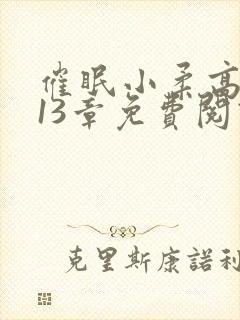 催眠小柔高
13章免費閱
克里斯康諾利